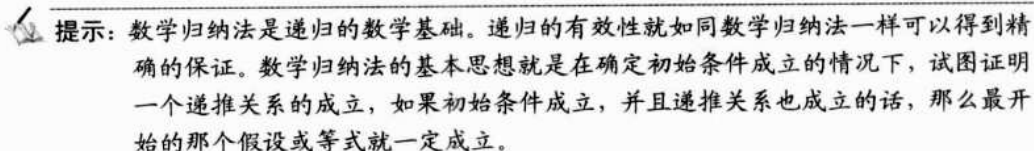 提示：数学归纳法是递归的数学基础。递归的有效性就如同数学归纳法一样可以得到精
确的保证。数学归纳法的基本思想就是在确定初始条件成立的情况下，试图证明
一个递推关系的成立，如果初始条件成立，并且递推关系也成立的话，那么最开
始的那个假设或等式就一定成立。